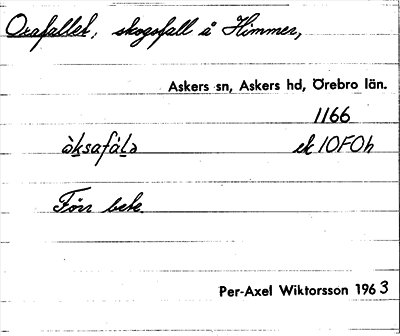 Oxafallet, skogsfall å Himmer,
Askers sn, Askers hd, Örebro län.
1166
àksafál̠ə ek 10F0h
Förr bete.
Per-Axel Wiktorsson 1963